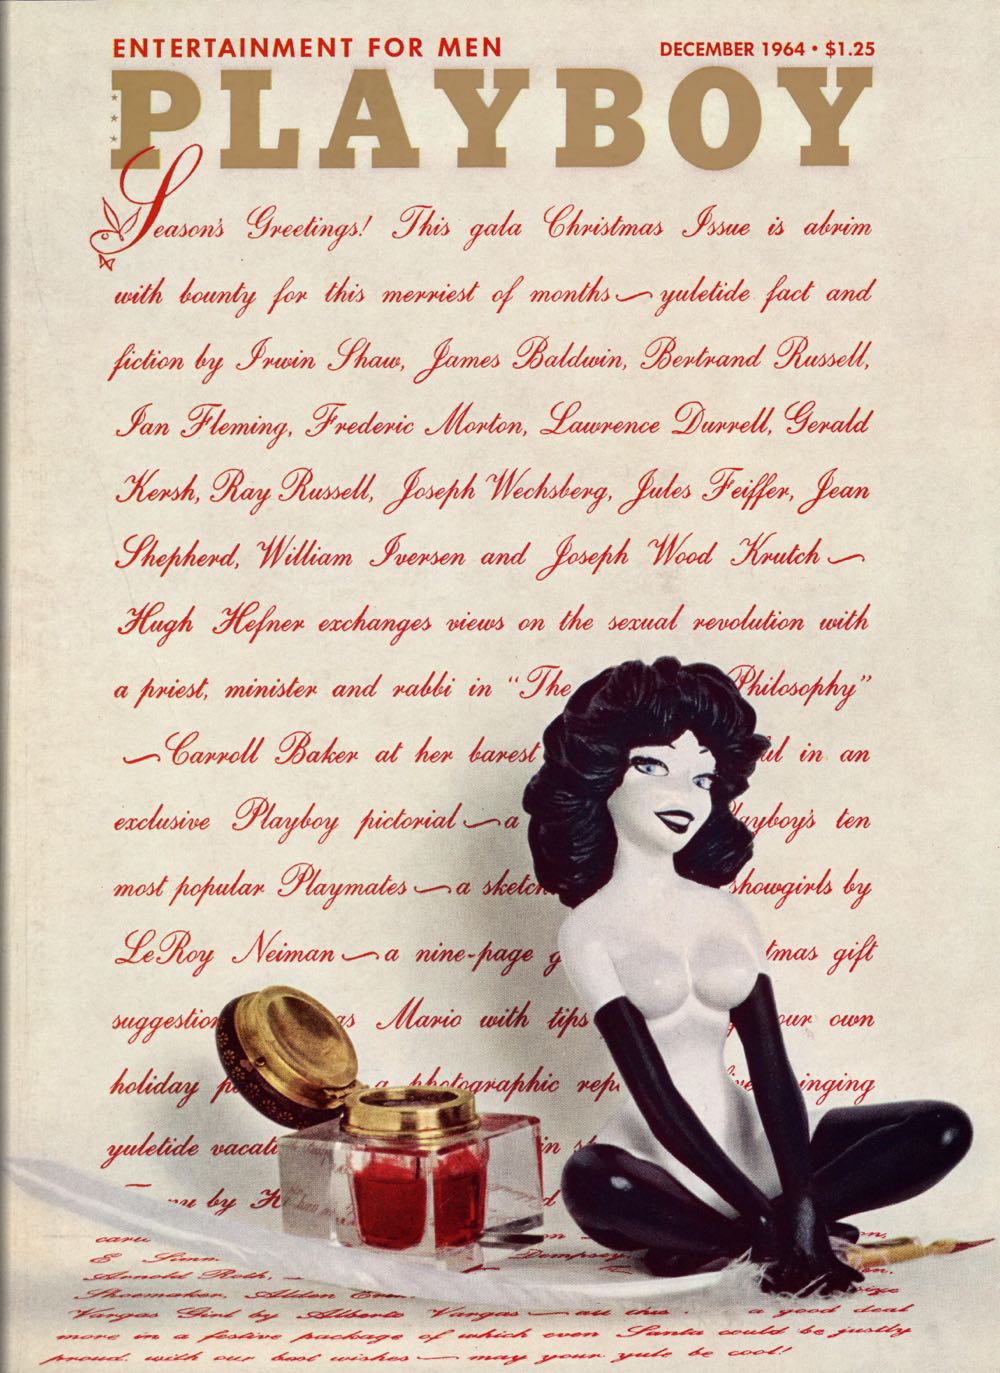 ENTERTAINMENT FOR MEN
DECEMBER 1964 • $1.25
PLAYBOY
Season's Greetings! This gala Christmas Issue is abrim
with bounty for this merriest of months~yuletide fact and
fiction by Irwin Shaw, James Baldwin, Bertrand Russell,
Ian Fleming, Frederic Morton, Lawrence Durrell, Gerald
Kersh, Ray Russell, Joseph Wechsberg, Jules Feiffer, Jean
Shepherd, William Iversen and Joseph Wood Krutch~
Hugh Hefner exchanges views on the sexual revolution with
a priest, minister and rabbi in "The Philosophy"
~Carroll Baker at her barest in an
exclusive Playboy pictorial~a ten
most popular Playmates~a showgirls by
LeRoy Neiman~a nine-page gift
Mario with tips our own
holiday a photographic
yuletide in
by
E. Simm
Dempsey
Arnold Roth,
Shoemaker, Alden size
Vargas Girl by Alberto Vargas~all this a good deal
more in a festive package of which even Santa could be justly
proud. with our best wishes~may your yule be cool!